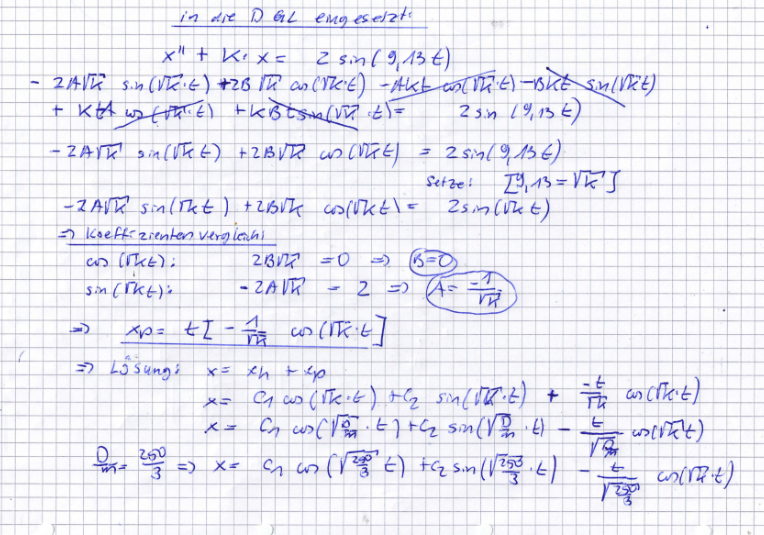 in die DGL eingesetzt:
x'' + K · x = 2 sin(9,13t)
- 2A√k sin(√k·t) + 2B√k cos(√k·t) - AKt cos(√k·t) - BKt sin(√kt)
+ KtA cos(√k·t) + KBt sin(√k·t) = 2 sin(9,13t)
- 2A√k sin(√kt) + 2B√k cos(√kt) = 2 sin(9,13t)
setze: [9,13 = √k]
- 2A√k sin(√kt) + 2B√k cos(√kt) = 2 sin(√kt)
⇒ Koeffizientenvergleich
cos(√kt): 2B√k = 0 ⇒ B=0
sin(√kt): - 2A√k = 2 ⇒ A = -1/√k
⇒ xp = t[- 1/√k cos(√k·t]
⇒ Lösung: x = xh + xp
x = C1 cos(√k·t) + C2 sin(√k·t) + -t/√k cos(√k·t)
x = C1 cos(√D/m · t) + C2 sin(√D/m · t) - t/√D/m cos(√k·t)
D/m = 250/3 ⇒ x = C1 cos(√250/3 t) + C2 sin(√250/3 · t) - t/√250/3 cos(√k·t)